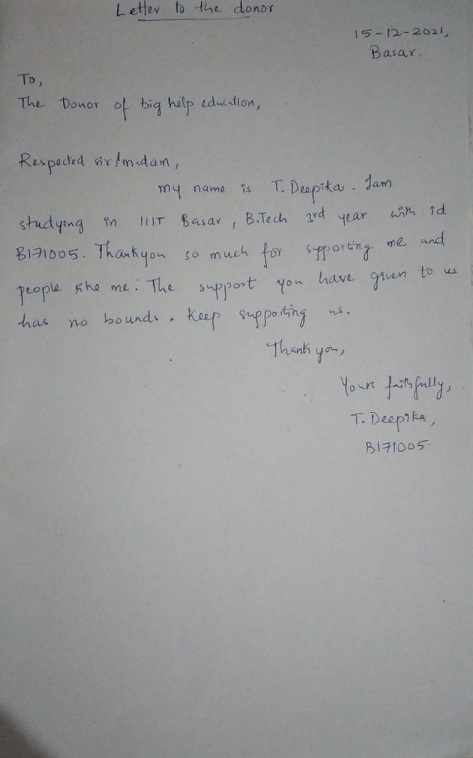 Letter to the donor
15-12-2021,
Basar.
To,
The Donor of big help education,
Respected sir/madam,
my name is T. Deepika. I am
studying in IIIT Basar, B.Tech 3rd year with id
B171005. Thankyou so much for supporting me and
people like me. The support you have given to us
has no bounds. Keep supporting us.
Thank you,
Yours faithfully,
T. Deepika,
B171005